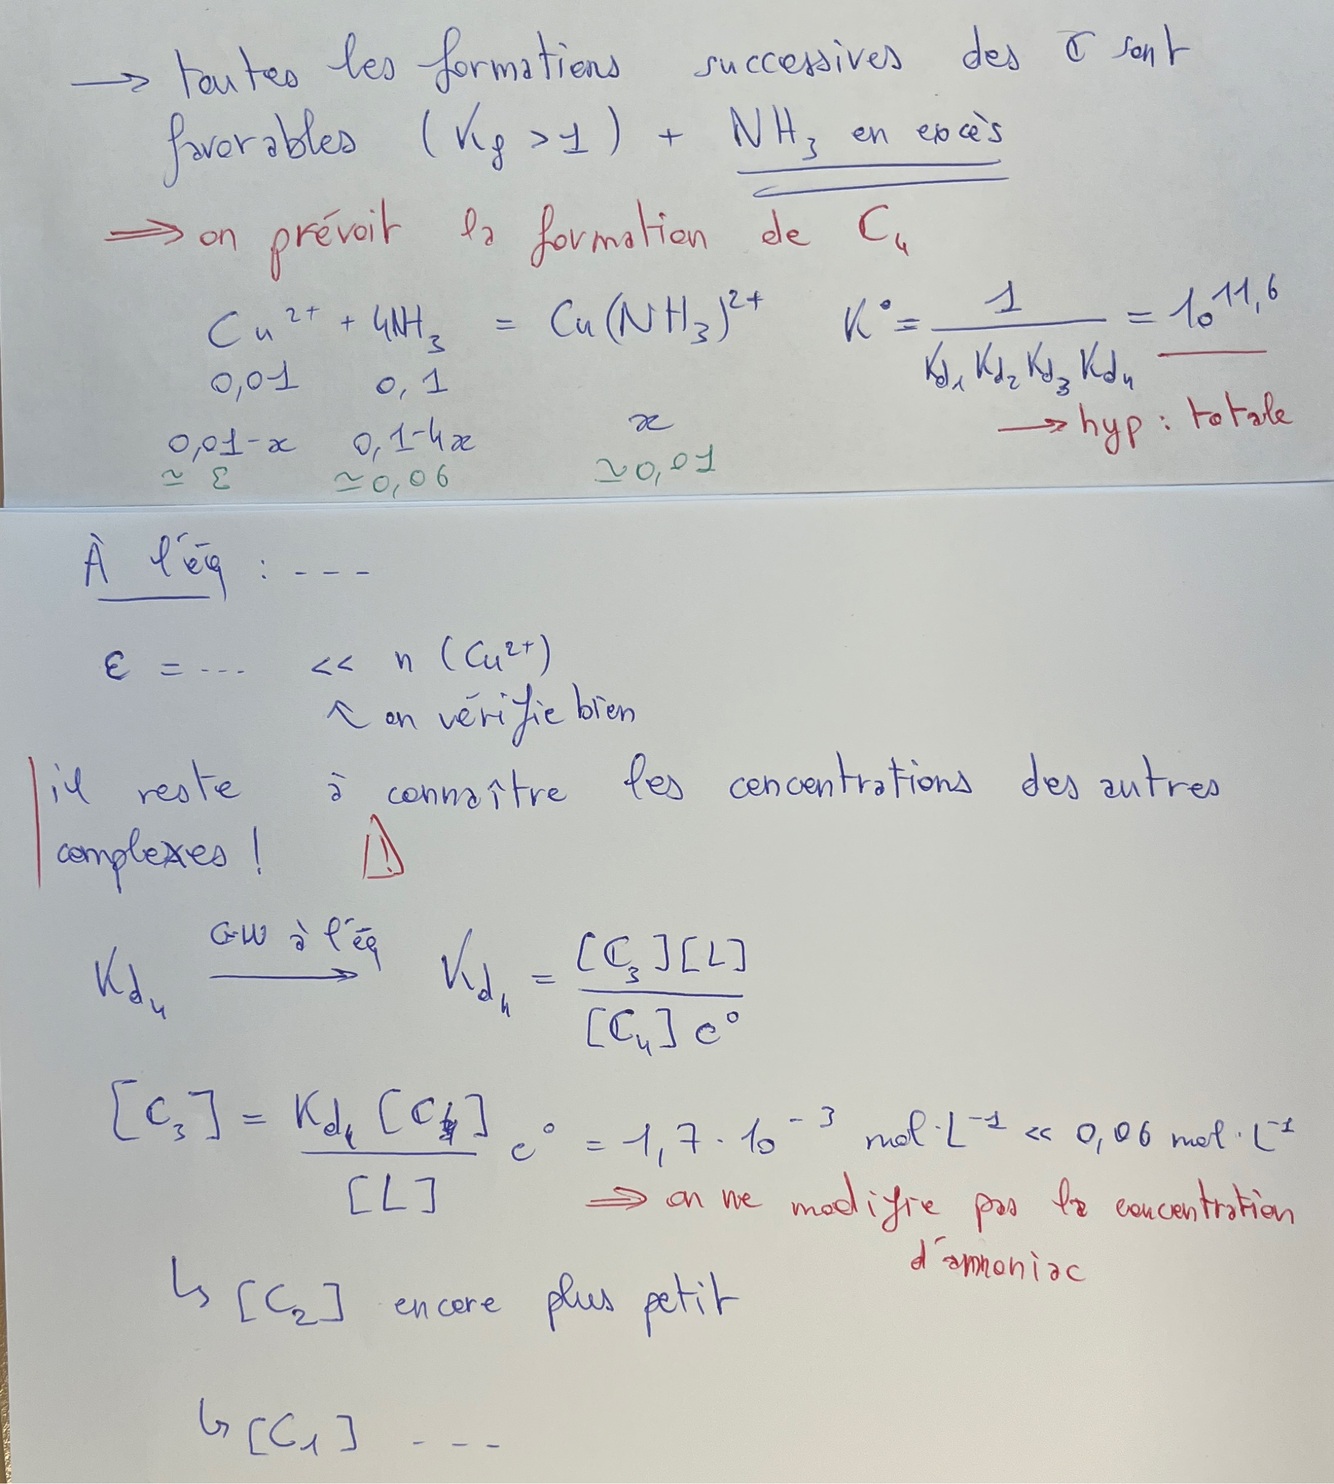 → toutes les formations successives des C sont
favorables (Kf > 1) + NH₃ en excès
⇒ on prévoit la formation de C₄
Cu²⁺ + 4NH₃ = Cu(NH₃)²⁺ K° = 1 / (Kd₁ Kd₂ Kd₃ Kd₄) = 10^11,6
0,01 0,1
→ hyp : totale
0,01-x 0,1-4x x
≃ ε ≃0,06 ≃0,01
À l'éq : ---
ε = ... << n (Cu²⁺)
↖ on vérifie bien
il reste à connaître les concentrations des autres
complexes ! ⚠
Kd₄ GW à l'éq → Kd₄ = [C₃][L] / [C₄] c°
[C₃] = Kd₄ [C₄] / [L] c° = 1,7·10⁻³ mol·L⁻¹ << 0,06 mol·L⁻¹
⇒ on ne modifie pas la concentration
d'ammoniac
↳ [C₂] encore plus petit
↳ [C₁] ---